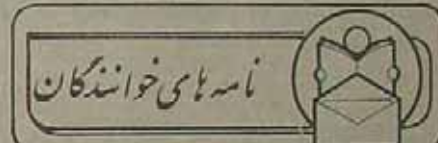 نامه های خوانندگان